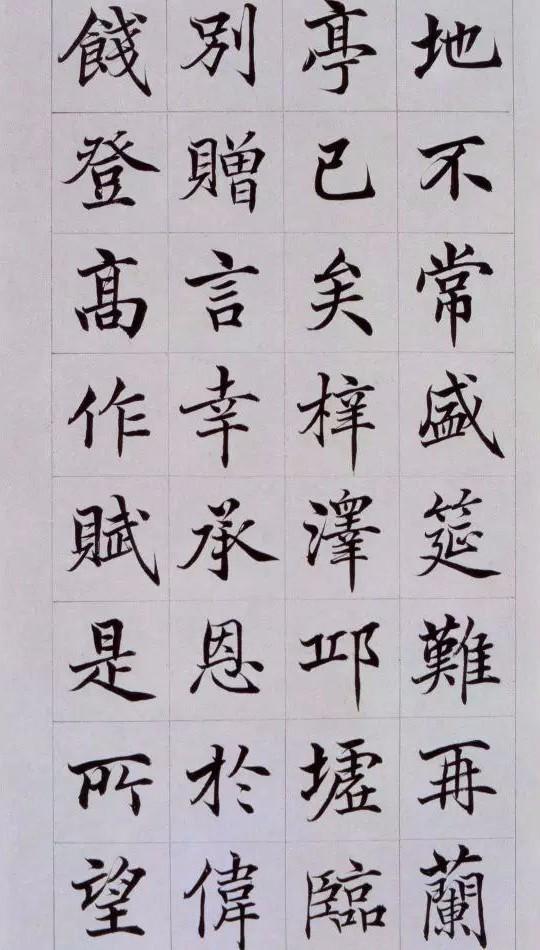 地不常盛筵難再蘭
亭已矣梓澤邱墟臨
別贈言幸承恩於偉
餞登髙作賦是所望